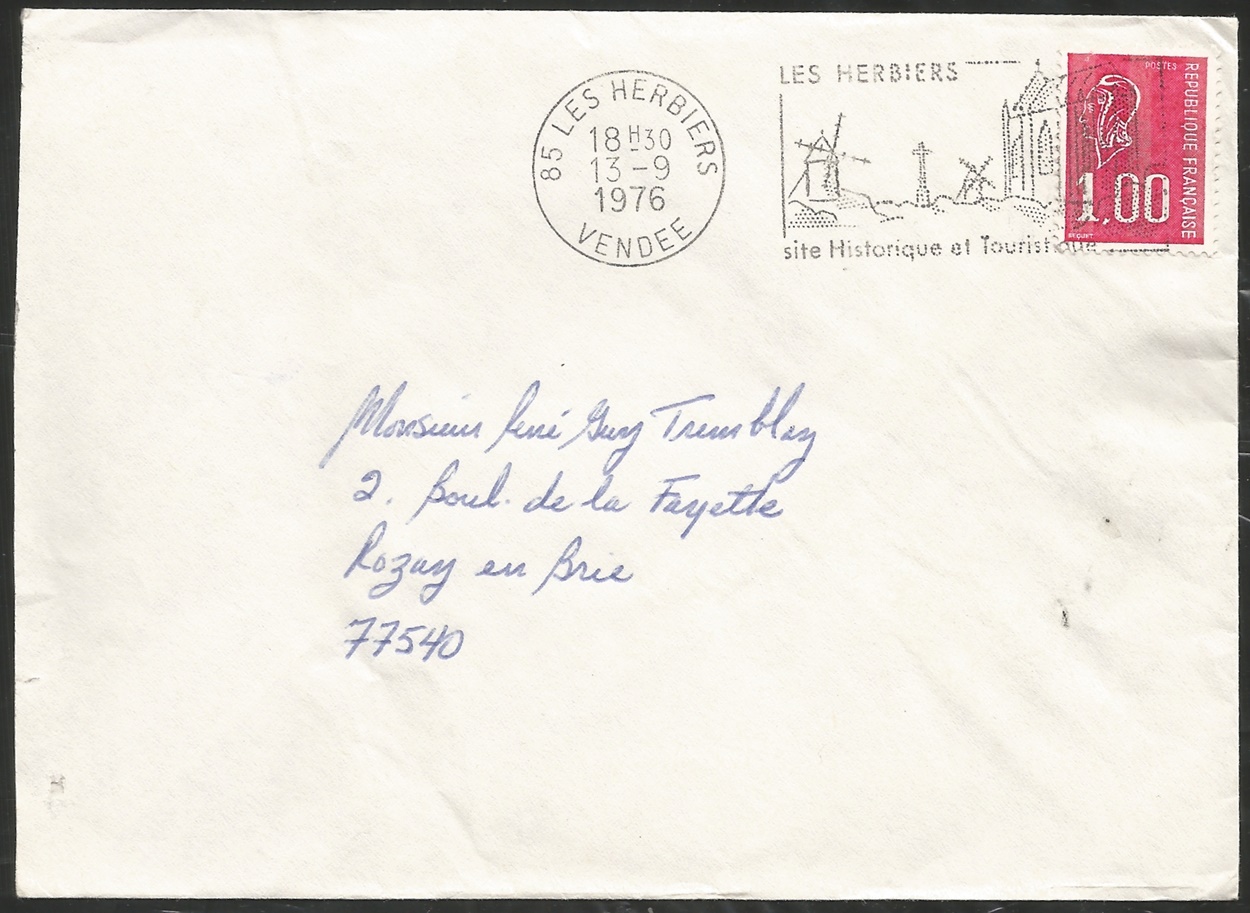 85 LES HERBIERS
18H30
13-9
1976
VENDEE
LES HERBIERS
site Historique et Touristique
POSTES
REPUBLIQUE FRANÇAISE
1,00
BEQUET
Monsieur René Guy Tremblay
2. Boul. de la Fayette
Rozay en Brie
77540